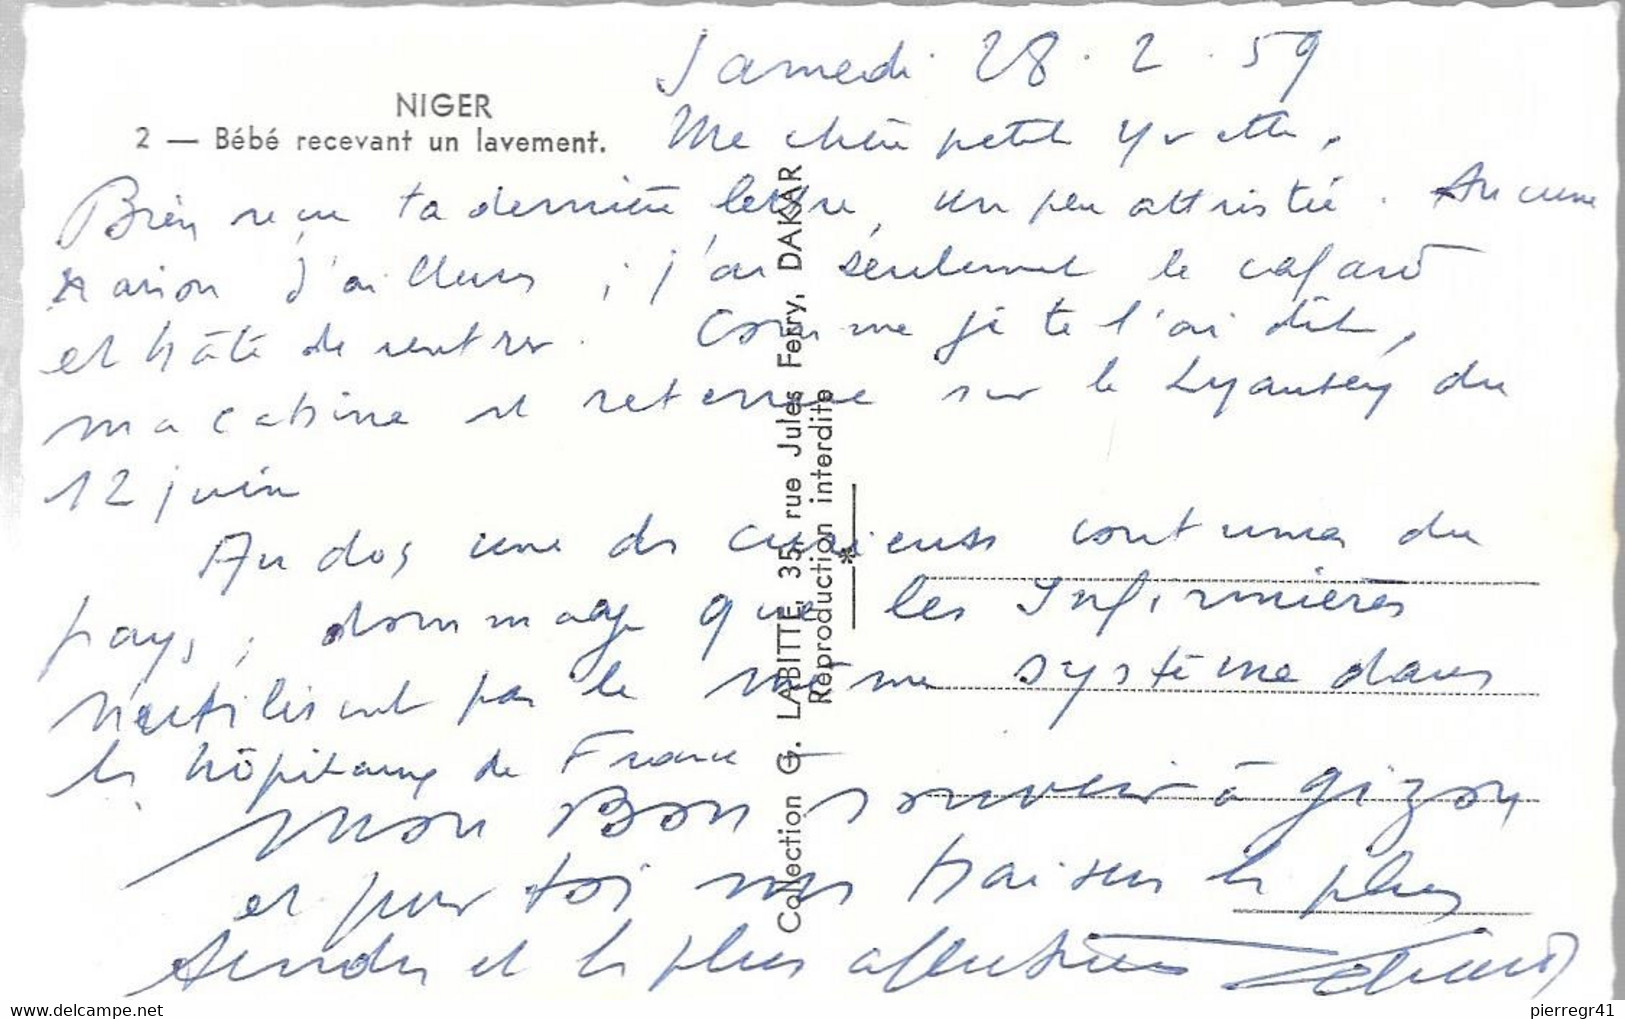 Samedi 28.2.59
NIGER
2 — Bébé recevant un lavement.
Ma chère petite Yvette,
Bien reçu ta dernière lettre, un peu attristée. Aucune
raison d'ailleurs, j'ai seulement le cafard
et hâte de rentrer. Comme je te l'ai dit,
ma cabine est retenue sur le Lyautey du
12 juin
Au dos une des curieuses coutumes du
pays, dommage que les Infirmières
n'utilisent pas le même système dans
les hôpitaux de France
Mon Bon souvenir à
et pour toi mes baisers les plus
tendres et les plus affectueux
Collection G. LABITTE, 35, rue Jules Ferry, DAKAR
Reproduction interdite
pierregr41